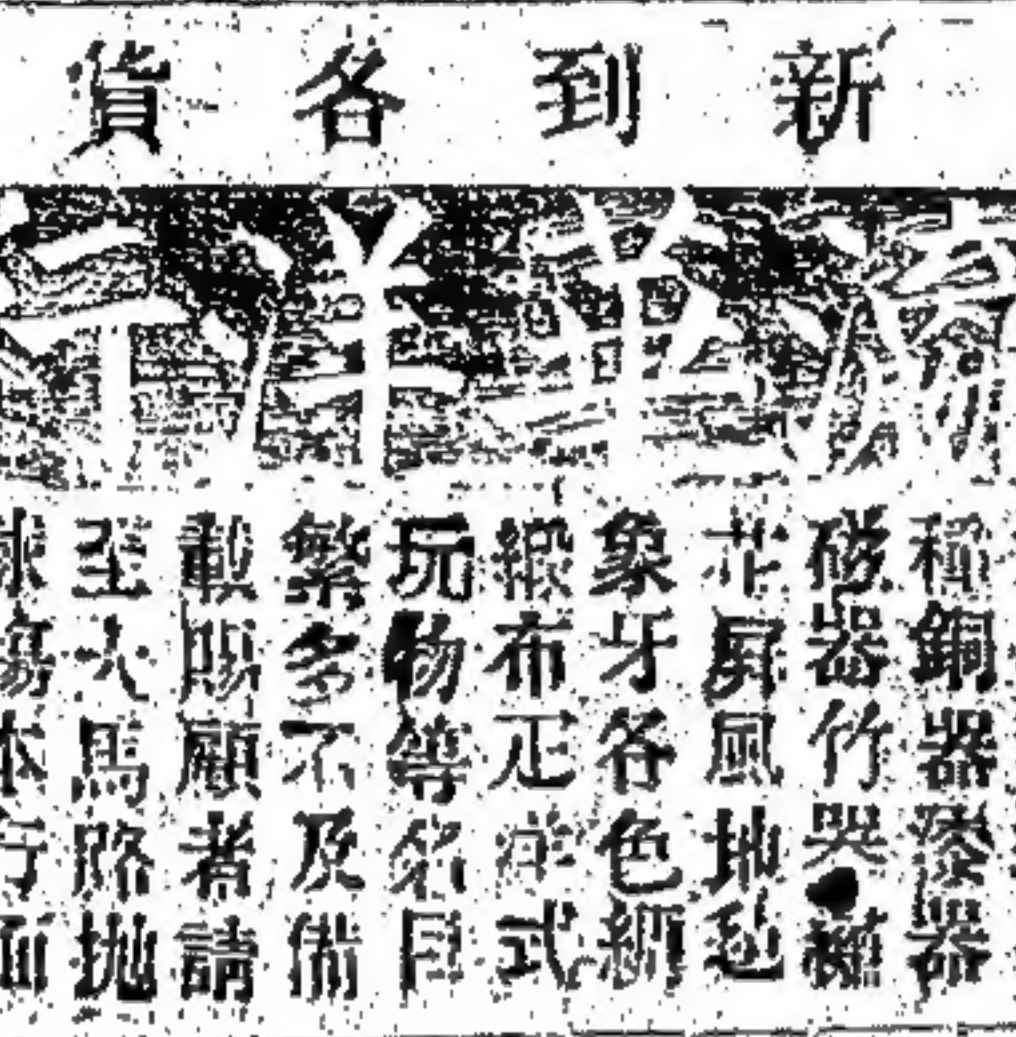 新到各貨
洋行
種銅器漆器
磁器竹器繡
花屏風地毯
象牙各色綢
緞布疋洋式
玩物等名目
繁多不及備
載賜顧者請
至大馬路拋
球場本行面